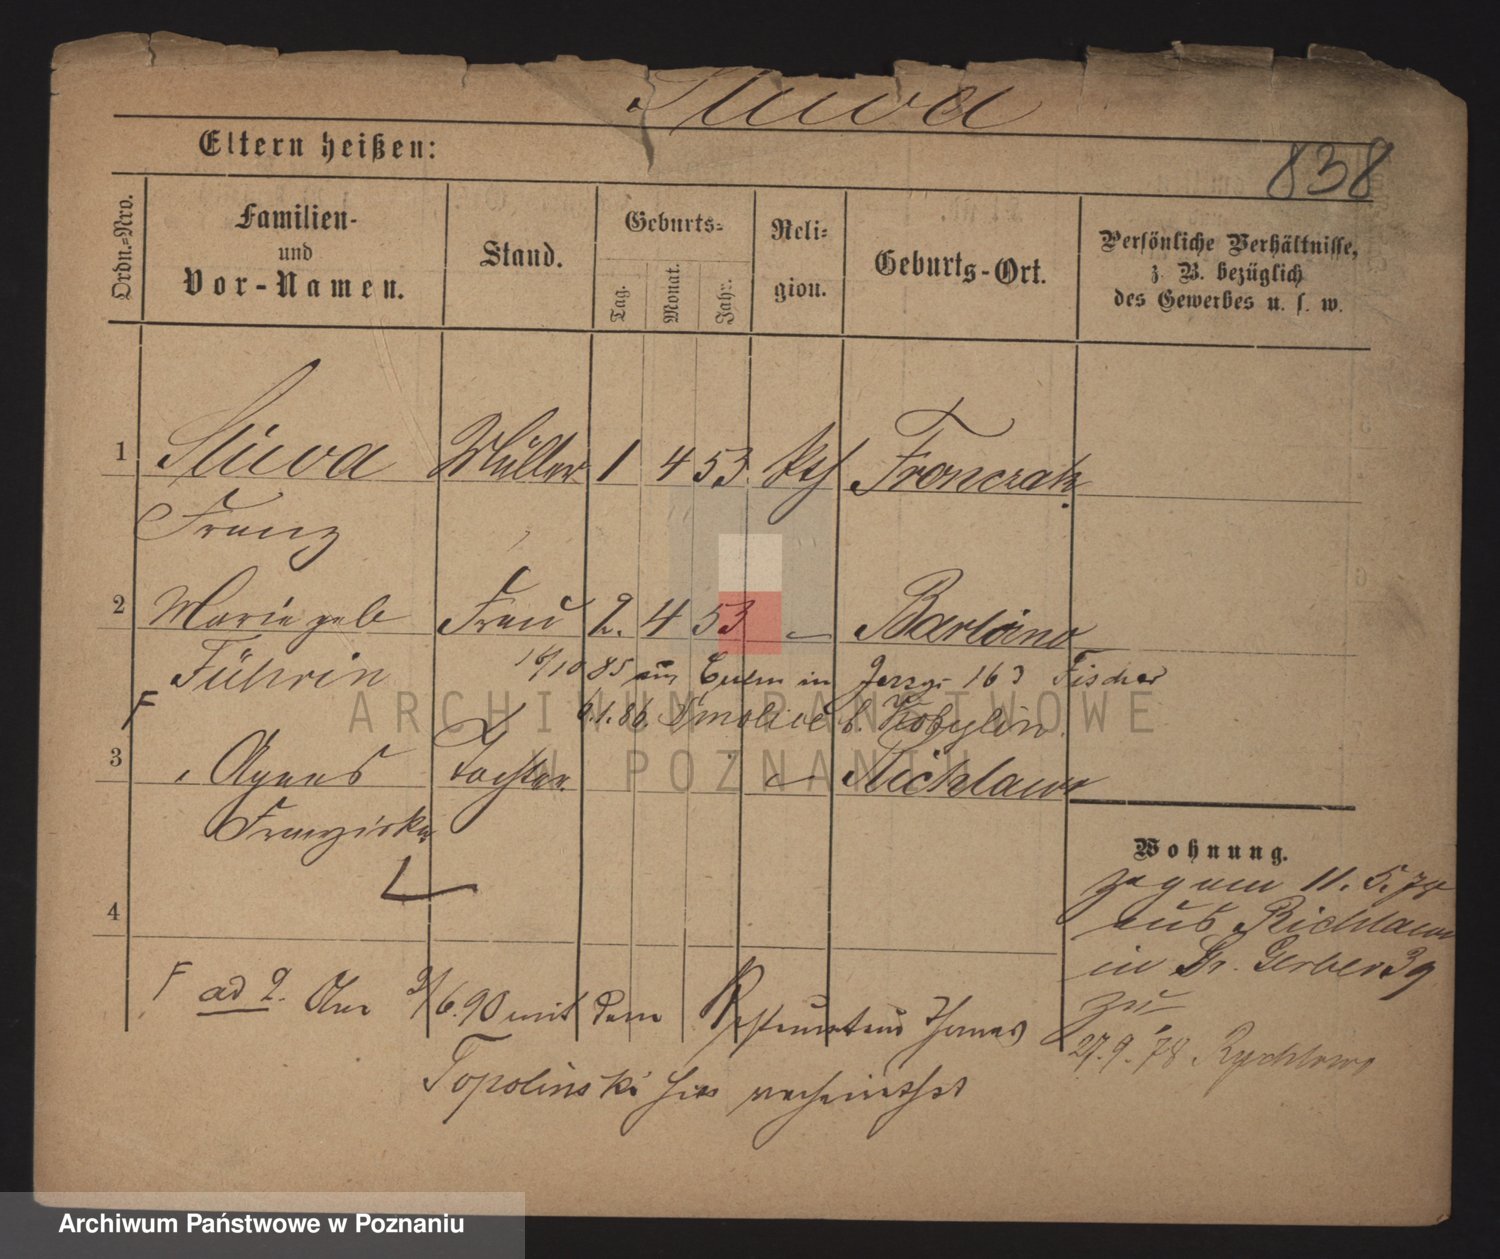 Sluva
Eltern heißen:
838
Ordn.-Nro.
Familien-
und
Vor-Namen.
Stand.
Geburts-
Tag.
Monat.
Jahr.
Reli-
gion.
Geburts-Ort.
Persönliche Verhältnisse,
z. B. bezüglich
des Gewerbes u. s. w.
1 Müller 1 4 53 kth Fronczak
Franz
2 Marie geb Frau 2. 4 53 –
Führin
10 85 aus in Jerzyc 163 Fischer
F
6.1.86. Smolice b. Kobylin
3 Agnes Tochter –
Franziska
4
Wohnung.
zog am 11. 5. 78
aus Richlawo
in Gr. Gerber 39
zu
27. 9. 78 Rychlewo
F ad 2. 6.90 mit dem Restaurateur Thomas
Topolinski hier verheirathet
ARCHIWUM PAŃSTWOWE
W POZNANIU
Archiwum Państwowe w Poznaniu